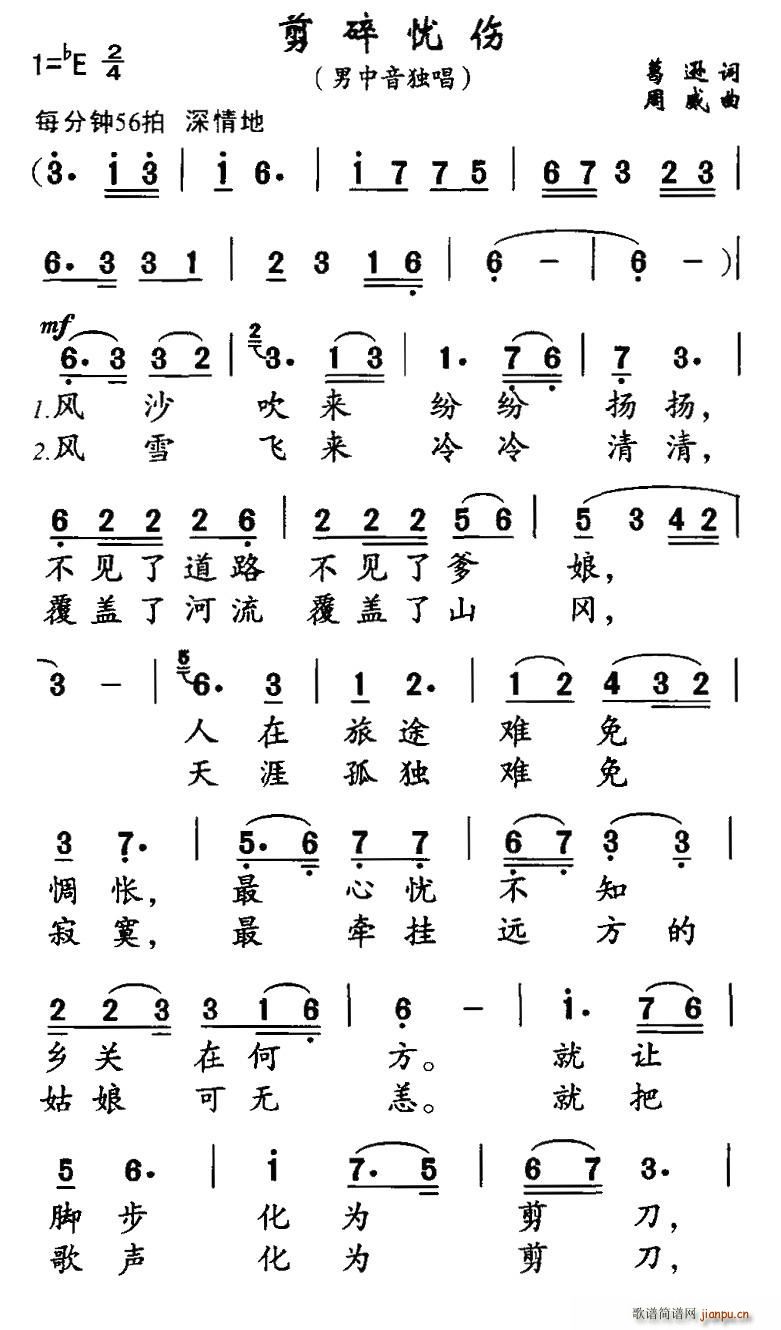 剪碎忧伤
1=♭E 2/4
（男中音独唱）
葛逊词
周威曲
每分钟56拍 深情地
(3. 1 3 | 1 6. | 1 7 7 5 | 6 7 3 2 3 |
6. 3 3 1 | 2 3 1 6 | 6 - | 6 - )|
mf
6. 3 3 2 | 2 3. 1 3 | 1. 7 6 | 7 3. |
1.风沙吹来纷纷扬扬，
2.风雪飞来冷冷清清，
6 2 2 2 6 | 2 2 2 5 6 | 5 3 4 2 |
不见了道路不见了爹娘，
覆盖了河流覆盖了山冈，
3 - | 5 6. 3 | 1 2. | 1 2 4 3 2 |
人在旅途难免
天涯孤独难免
3 7. | 5. 6 7 7 | 6 7 3 3 |
惆怅，最心忧不知
寂寞，最牵挂远方的
2 2 3 3 1 6 | 6 - | 1. 7 6 |
乡关在何方。就让
姑娘可无恙。就把
5 6. | 1 7. 5 | 6 7 3. |
脚步化为剪刀，
歌声化为剪刀，
歌谱简谱网 jianpu.cn